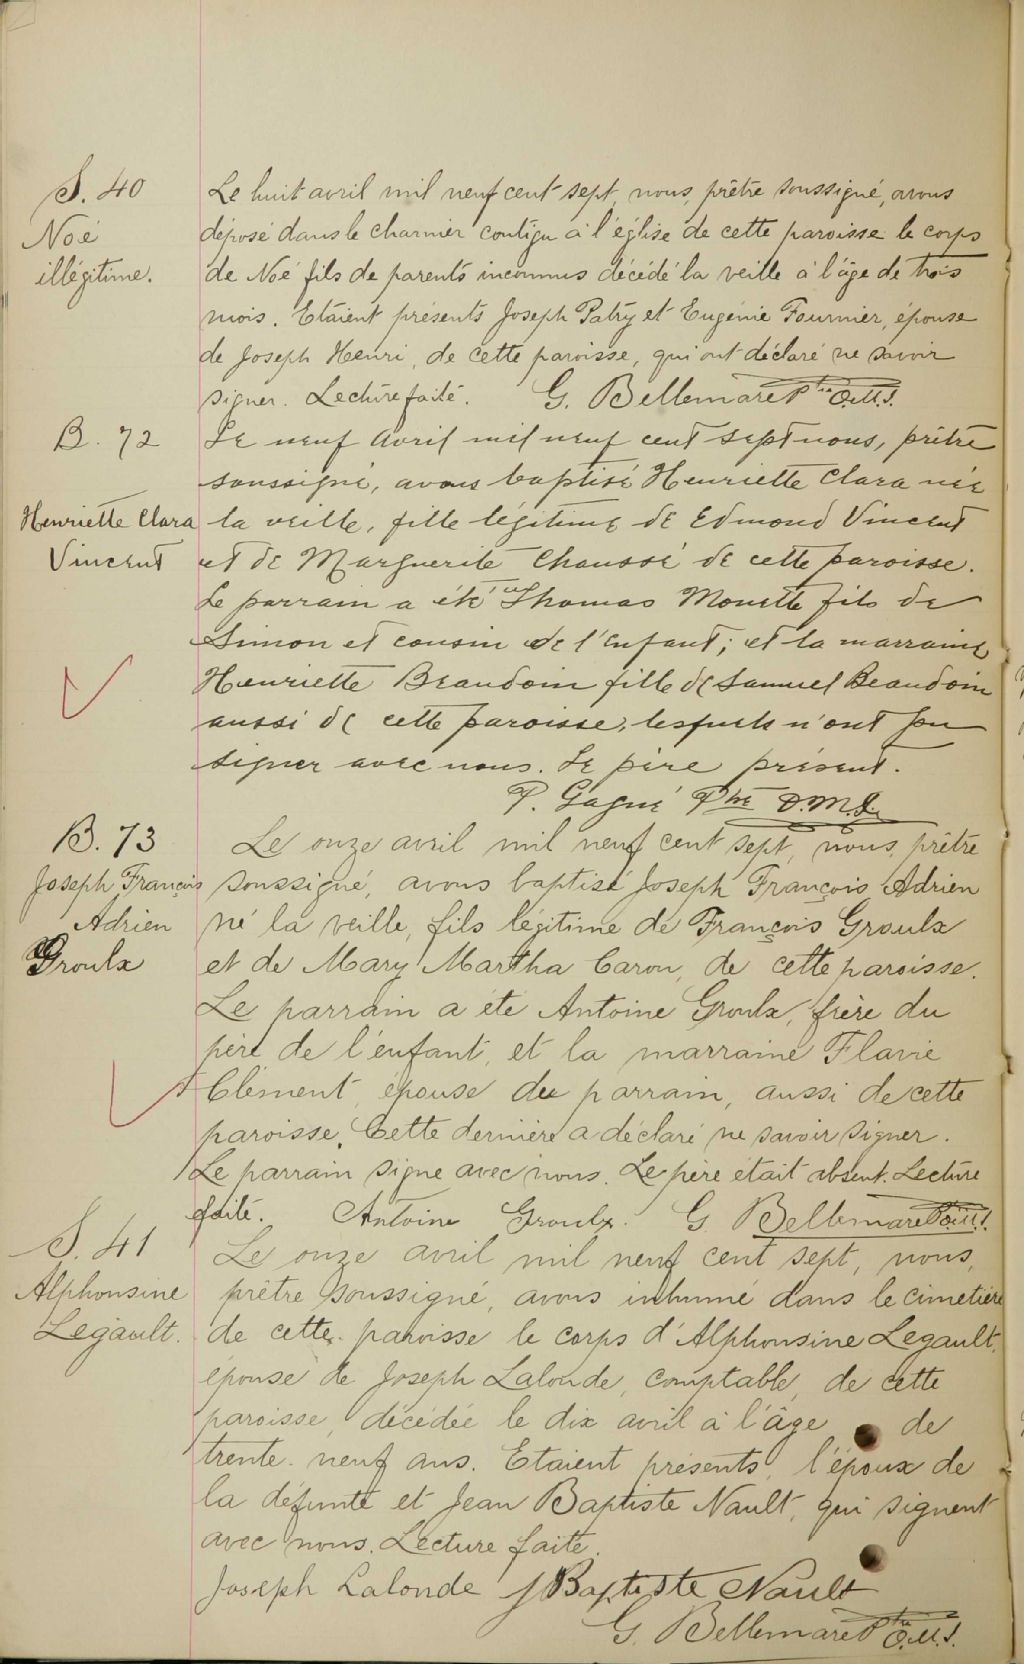 S. 40
Noé
illégitime.
Le huit avril mil neuf cent sept, nous, prêtre soussigné, avons
déposé dans le charnier contigu à l'église de cette paroisse le corps
de Noé fils de parents inconnus décédé la veille à l'âge de trois
mois. Etaient présents Joseph Patry et Eugénie Fournier, épouse
de Joseph Henri, de cette paroisse, qui ont déclaré ne savoir
signer. Lecture faite. G. Bellemare Ptre O.M.I.
B. 72
Henriette Clara
Vincent
Le neuf Avril mil neuf cent sept nous, prêtre
soussigné, avons baptisé Henriette Clara née
la veille, fille légitime de Edmond Vincent
et de Marguerite Chaussé de cette paroisse.
Le parrain a été Thomas Monette fils de
Simon et cousin de l'enfant; et la marraine
Henriette Beaudoin fille de Samuel Beaudoin
aussi de cette paroisse, lesquels n'ont pu
signer avec nous. Le père présent.
P. Gagné Ptre O.M.I.
B. 73
Joseph François
Adrien
Groulx
Le onze avril mil neuf cent sept, nous, prêtre
soussigné, avons baptisé Joseph François Adrien
né la veille, fils légitime de François Groulx
et de Mary Martha Caron, de cette paroisse.
Le parrain a été Antoine Groulx, frère du
père de l'enfant, et la marraine Flavie
Clément, épouse du parrain, aussi de cette
paroisse. Cette dernière a déclaré ne savoir signer.
Le parrain signe avec nous. Le père était absent. Lecture
faite. Antoine Groulx. G. Bellemare Ptre O.M.I.
S. 41
Alphonsine
Legault.
Le onze avril mil neuf cent sept, nous,
prêtre soussigné, avons inhumé dans le cimetière
de cette paroisse le corps d'Alphonsine Legault,
épouse de Joseph Lalonde, comptable, de cette
paroisse, décédée le dix avril à l'âge de
trente-neuf ans. Etaient présents, l'époux de
la défunte et Jean Baptiste Nault, qui signent
avec nous. Lecture faite.
Joseph Lalonde J Baptiste Nault
G. Bellemare Ptre O.M.I.